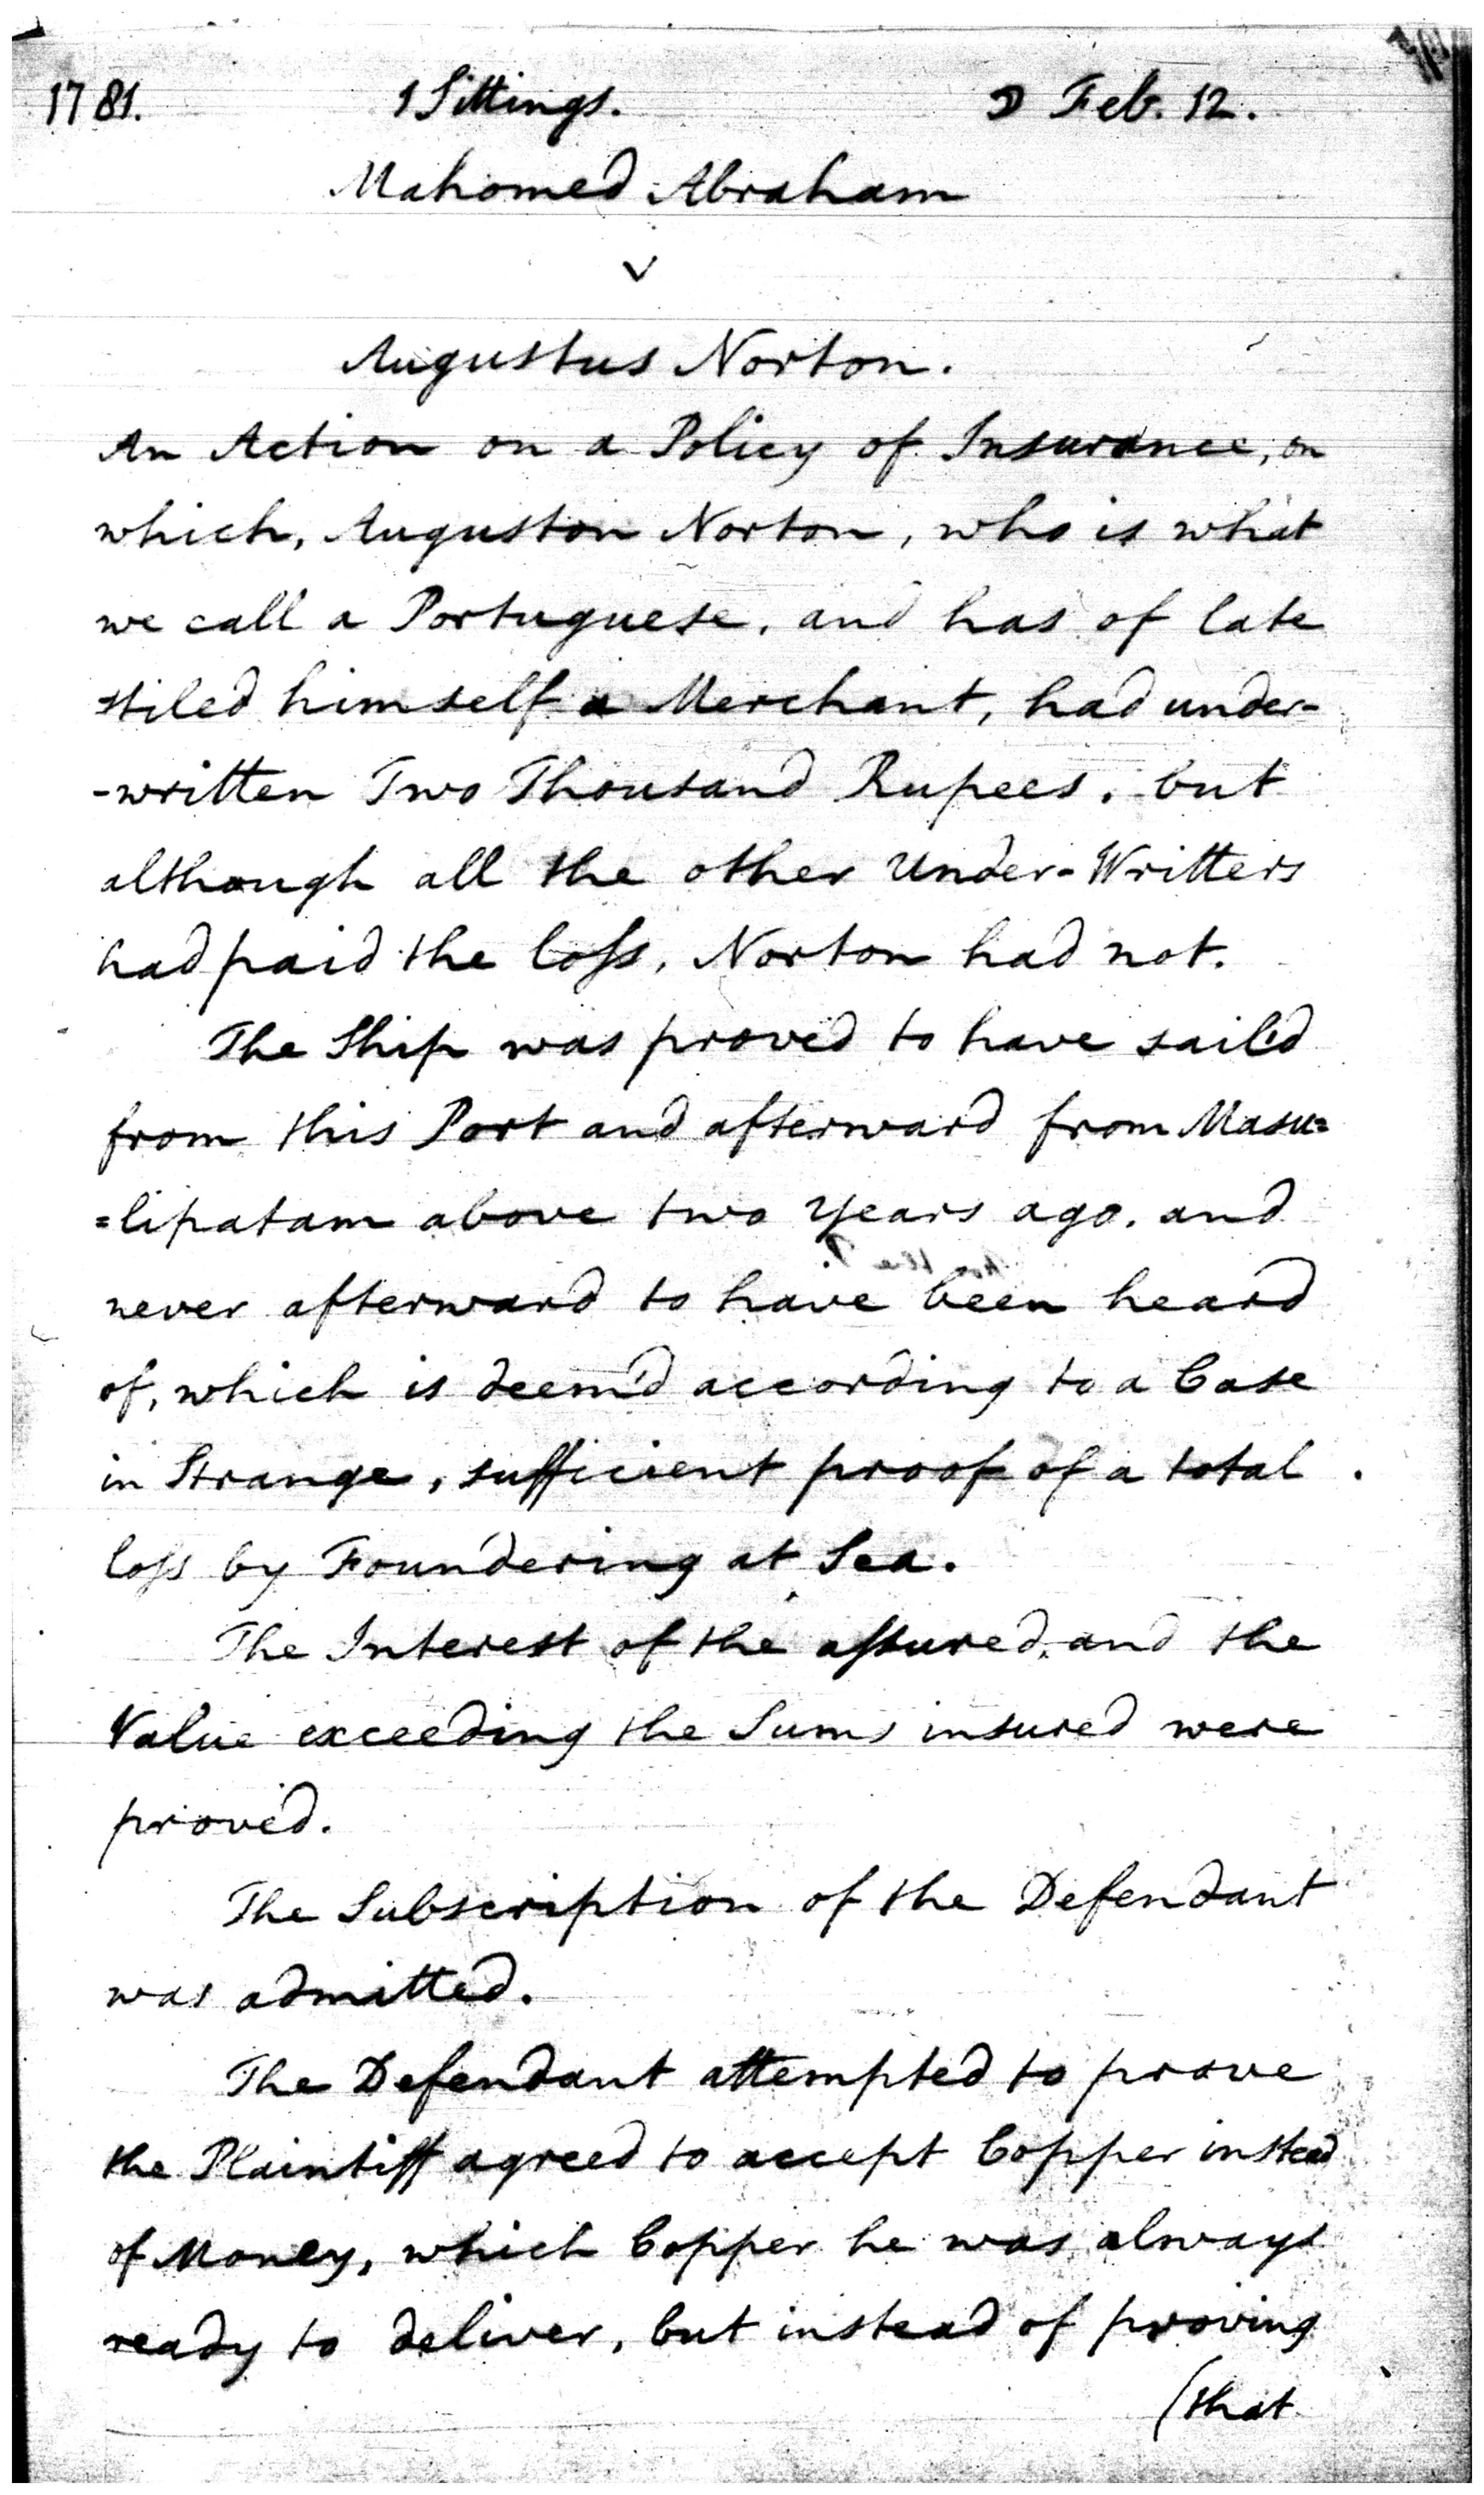 1781. 1 Sittings. ☽ Feb. 12.
Mahomed Abraham
v
Augustus Norton.
An Action on a Policy of Insurance, on
which, Auguston Norton, who is what
we call a Portuguese, and has of late
stiled himself a Merchant, had under-
-written Two Thousand Rupees, but
although all the other Under-Writters
had paid the loss, Norton had not.
The Ship was proved to have sail'd
from this Port and afterward from Masu=
=lipatam above two years ago, and
never afterward to have been heard
of, which is deem'd according to a Case
in Strange, sufficient proof of a total
loss by Foundering at Sea.
The Interest of the assured, and the
Value exceeding the Sums insured were
proved.
The Subscription of the Defendant
was admitted.
The Defendant attempted to prove
the Plaintiff agreed to accept Copper instead
of Money, which Copper he was always
ready to deliver, but instead of proving
(that